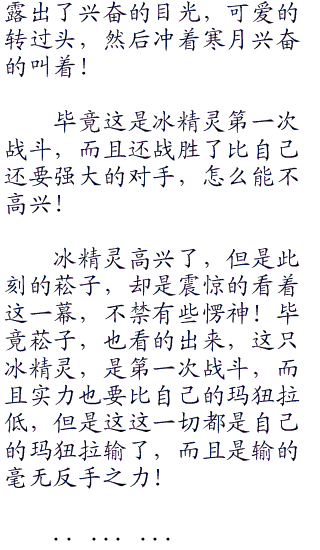 露出了兴奋的目光，可爱的
转过头，然后冲着寒月兴奋
的叫着！
毕竟这是冰精灵第一次
战斗，而且还战胜了比自己
还要强大的对手，怎么能不
高兴！
冰精灵高兴了，但是此
刻的菘子，却是震惊的看着
这一幕，不禁有些愣神！毕
竟菘子，也看的出来，这只
冰精灵，是第一次战斗，而
且实力也要比自己的玛狃拉
低，但是这这一切都是自己
的玛狃拉输了，而且是输的
毫无反手之力！
.. ... ...